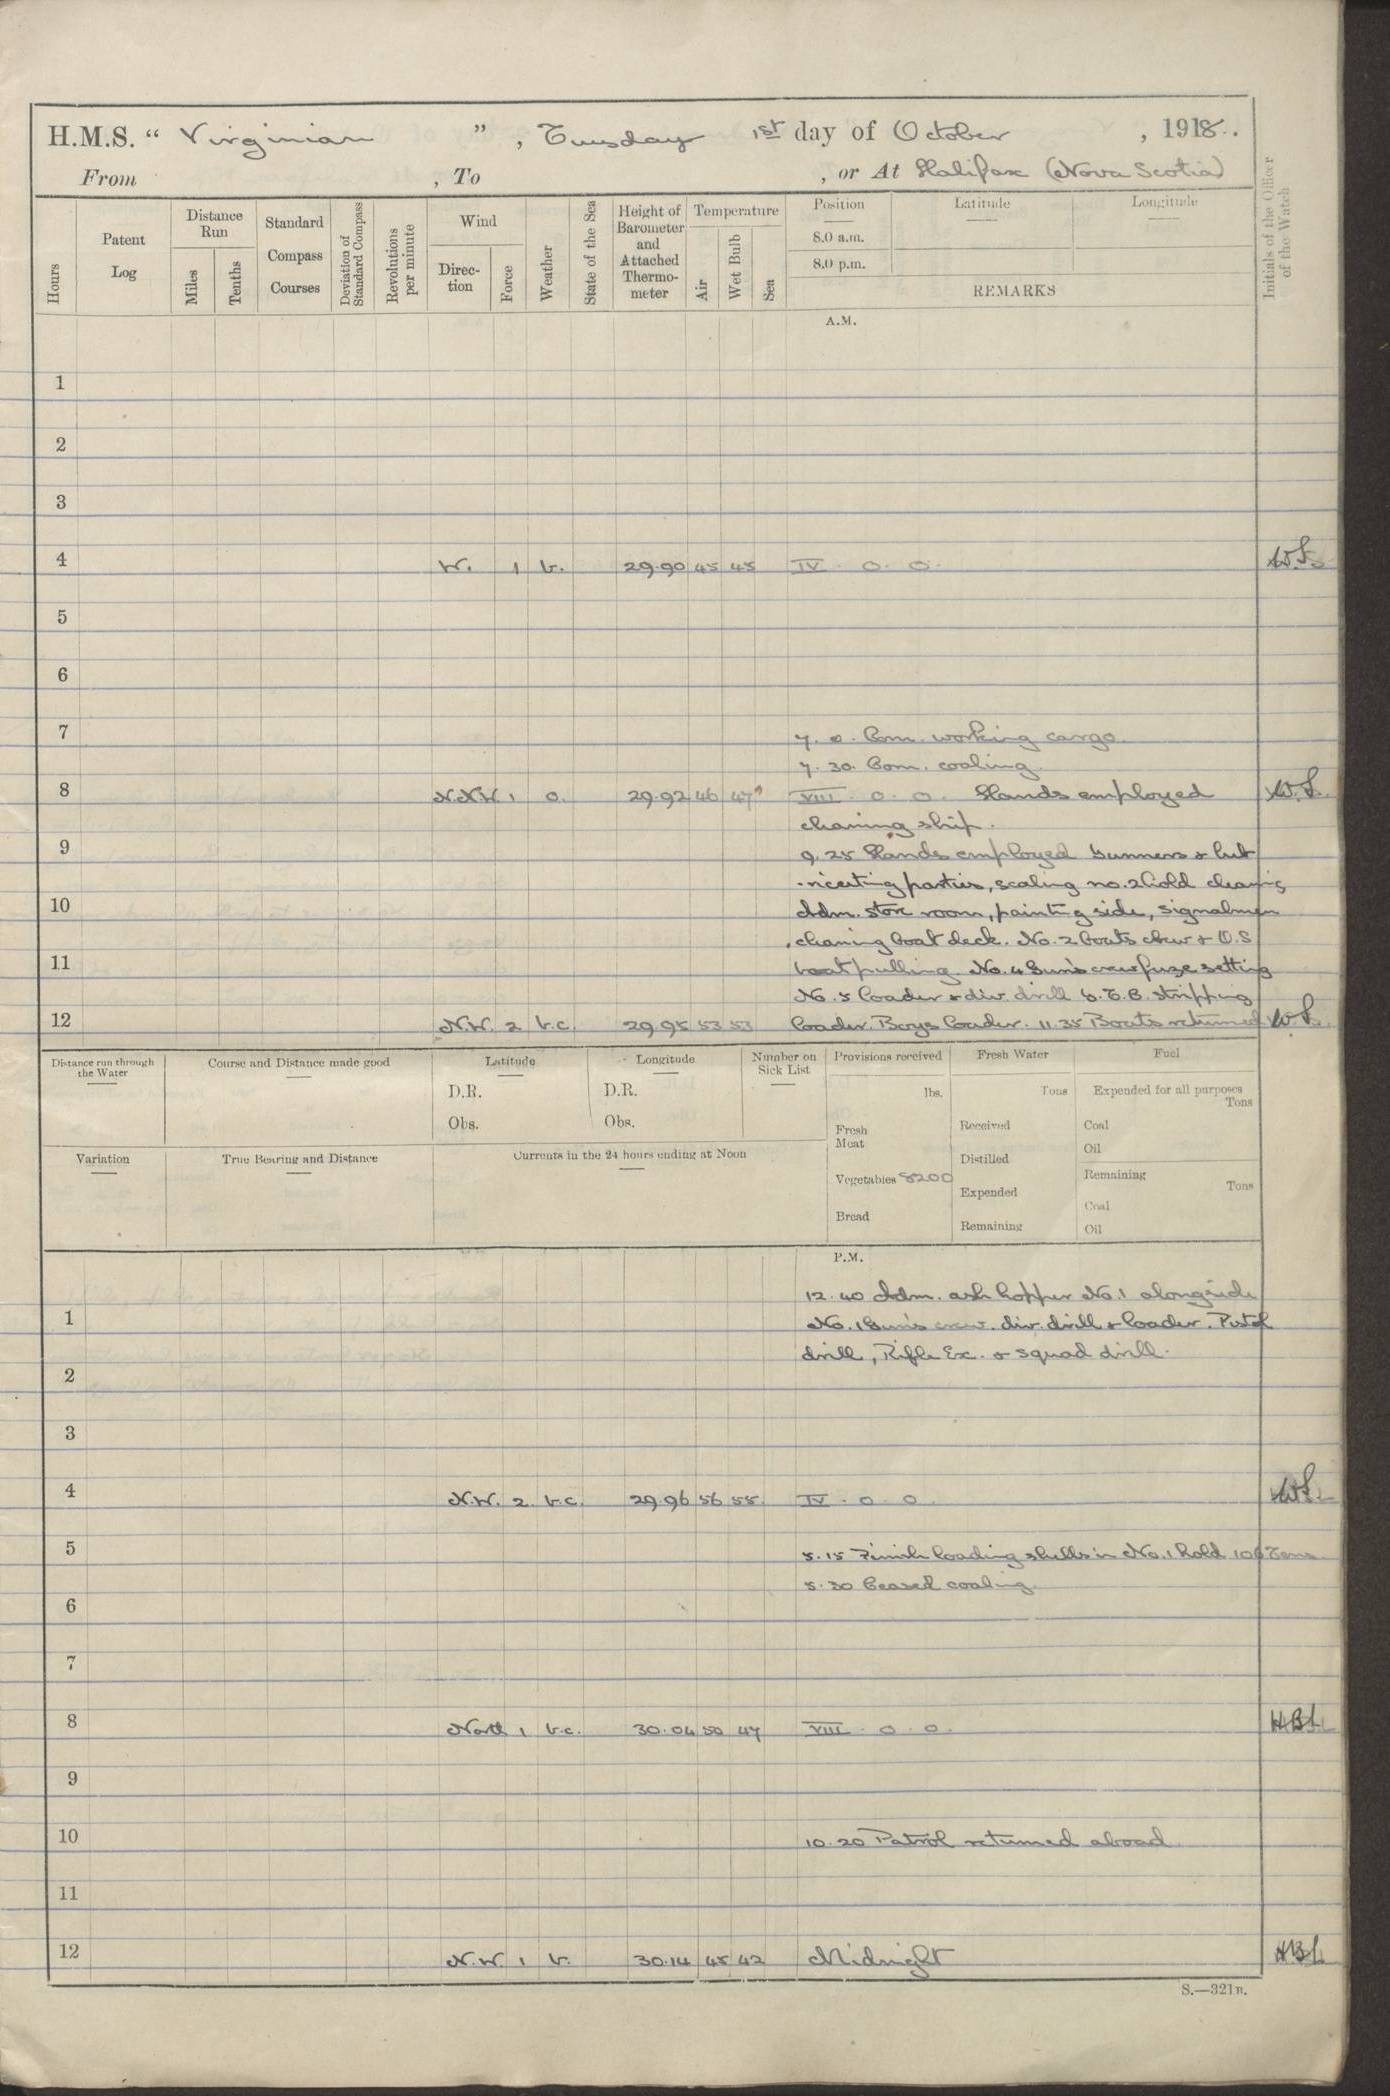 H.M.S. " Virginian ", Tuesday 1st day of October, 1918.
From , To , or At Halifax (Nova Scotia)
Hours
Patent Log
Distance Run
Miles
Tenths
Standard Compass Courses
Deviation of Standard Compass
Revolutions per minute
Wind
Direc-tion
Force
Weather
State of the Sea
Height of Barometer and Attached Thermo-meter
Temperature
Air
Wet Bulb
Sea
Position
8.0 a.m.
8.0 p.m.
Latitude
Longitude
REMARKS
Initials of the Officer of the Watch
A.M.
1
2
3
4 W. 1 b. 29.90 45 45 IV. 0. 0. W.S.
5
6
7 7. 0. Com. working cargo.
7. 30. Com. coaling.
8 N.N.W. 1 o. 29.92 46 47 VIII. 0. 0. Hands employed W.S.
cleaning ship.
9 9. 25 Hands employed Gunners & lub
-ricating parties, scaling no. 2 hold cleaning
10 Adm. store room, painting side, signalmen
cleaning boat deck. No. 2 boats crew & O.S
11 boat pulling. No. 4 Gun's crew fuze setting
No. 5 loader & div. drill 6. T. B. stripping
12 N.W. 2 b.c. 29.95 53 53 loader. Boys loader. 11.35 Boats returned W.S.
Distance run through the Water
Course and Distance made good
Latitude
D.R.
Obs.
Longitude
D.R.
Obs.
Number on Sick List
Provisions received
lbs.
Fresh Meat
Vegetables 8200
Bread
Fresh Water
Tons
Received
Distilled
Expended
Remaining
Fuel
Expended for all purposes
Tons
Coal
Oil
Remaining
Tons
Coal
Oil
Variation
True Bearing and Distance
Currents in the 24 hours ending at Noon
P.M.
12. 40 Adm. ash hopper No. 1 alongside
1 No. 1 Gun's crew. div. drill & loader. Pistol
drill, Rifle Ex. & squad drill.
2
3
4 N.W. 2 b.c. 29.96 56 55 IV. 0 0 W.S.
5 5. 15 Finish loading shells in No. 1 hold 106 Tons
5. 30 Ceased coaling.
6
7
8 North 1 b.c. 30.04 50 47 VIII. 0 0. HBL
9
10 10. 20 Patrol returned aboad
11
12 N.W. 1 b. 30.14 45 42 Midnight HBL
S.—321B.